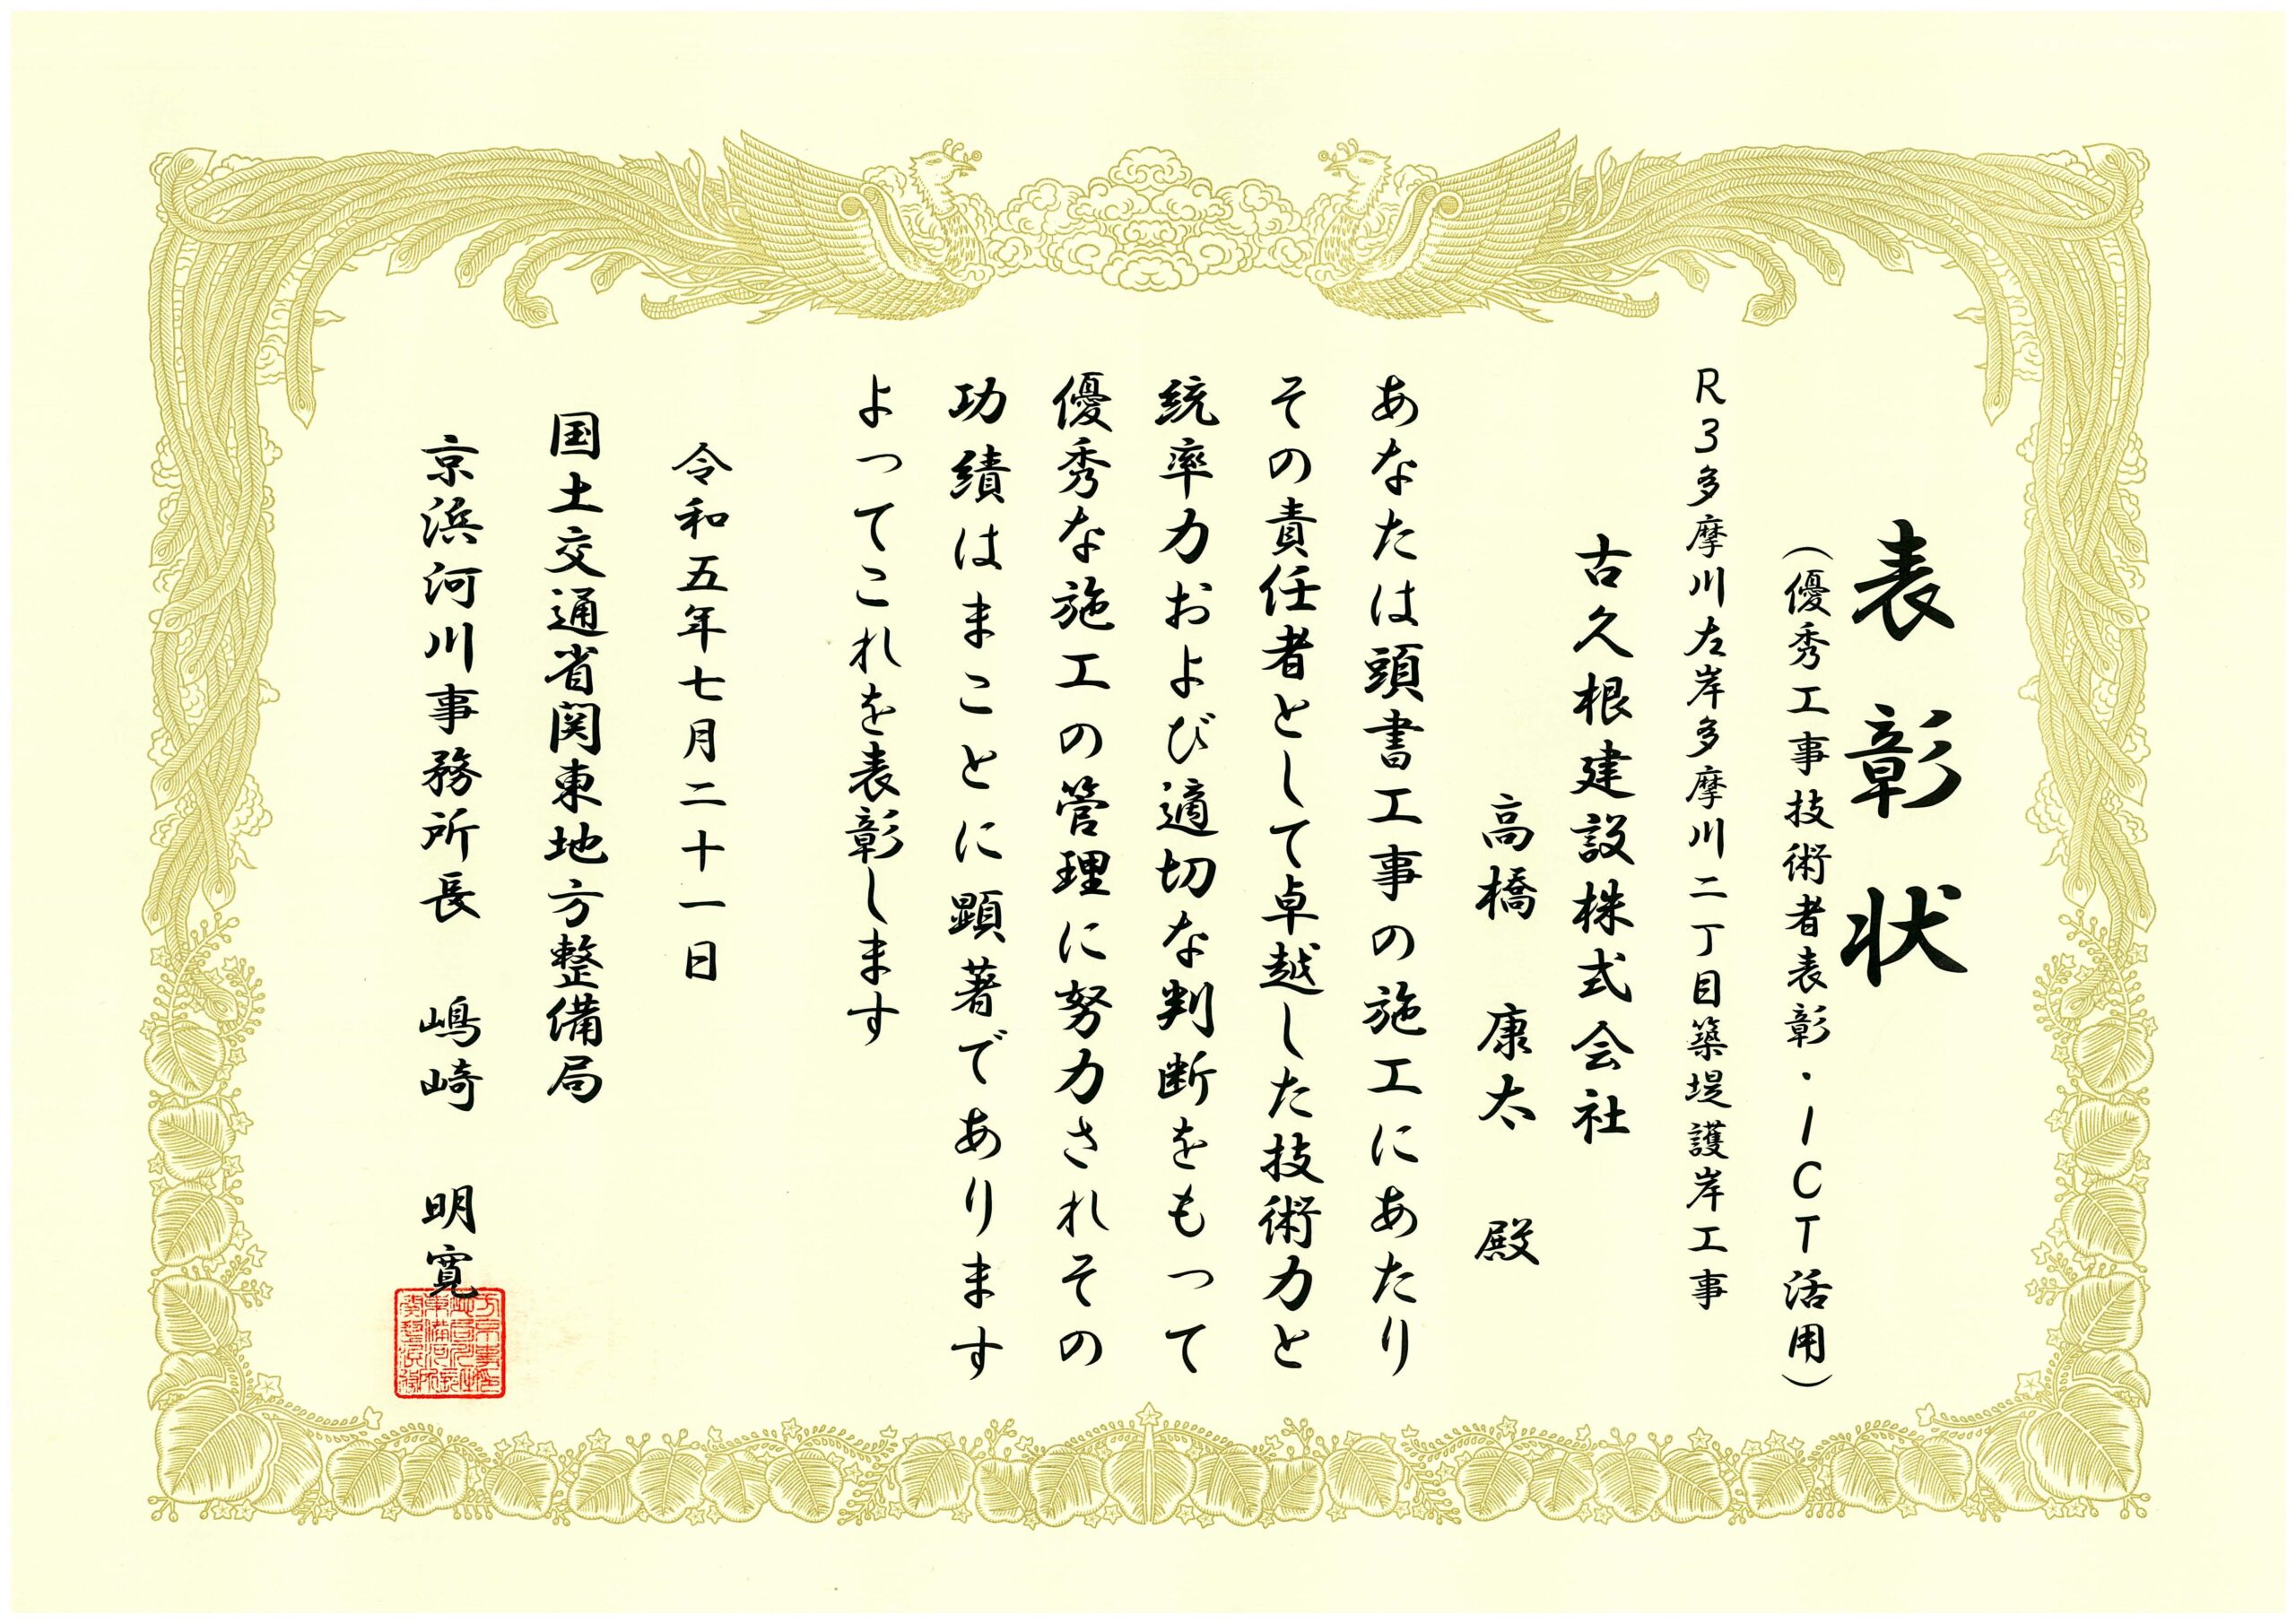 表彰状
(優秀工事技術者表彰・ICT活用)
R3多摩川左岸多摩川二丁目築堤護岸工事
古久根建設株式会社
高橋 康太 殿
あなたは頭書工事の施工にあたり
その責任者として卓越した技術力と
統率力および適切な判断をもって
優秀な施工の管理に努力されその
功績はまことに顕著であります
よってこれを表彰します
令和五年七月二十一日
国土交通省関東地方整備局
京浜河川事務所長 嶋崎 明寛